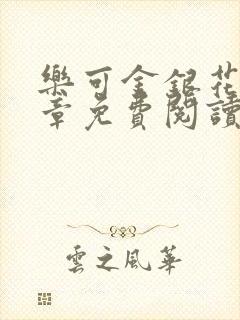 樂可金銀花
章免費閱讀
雲之風華